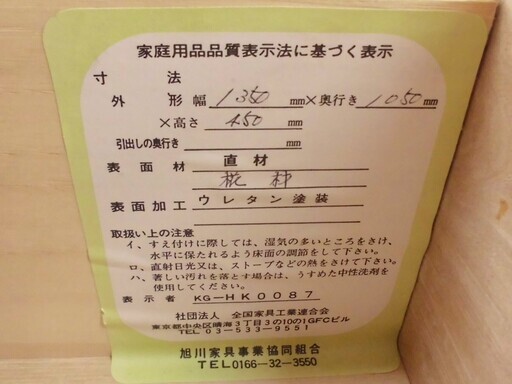 家庭用品品質表示法に基づく表示
寸法
外形幅 1350 mm×奥行き 1050 mm
×高さ 450 mm
引出しの奥行き mm
表面材 直材
椛材
表面加工 ウレタン塗装
取扱い上の注意
イ、すえ付けに際しては、湿気の多いところをさけ、
水平に保たれるよう床面の調節をして下さい。
ロ、直射日光又は、ストーブなどの熱をさけて下さい。
ハ、著しい汚れを落とす場合は、うすめた中性洗剤を
使用してください。
表示者 KG-HK0087
社団法人 全国家具工業連合会
東京都中央区晴海3丁目3の10の1GFCビル
TEL 03-533-9551
旭川家具事業協同組合
TEL0166-32-3550